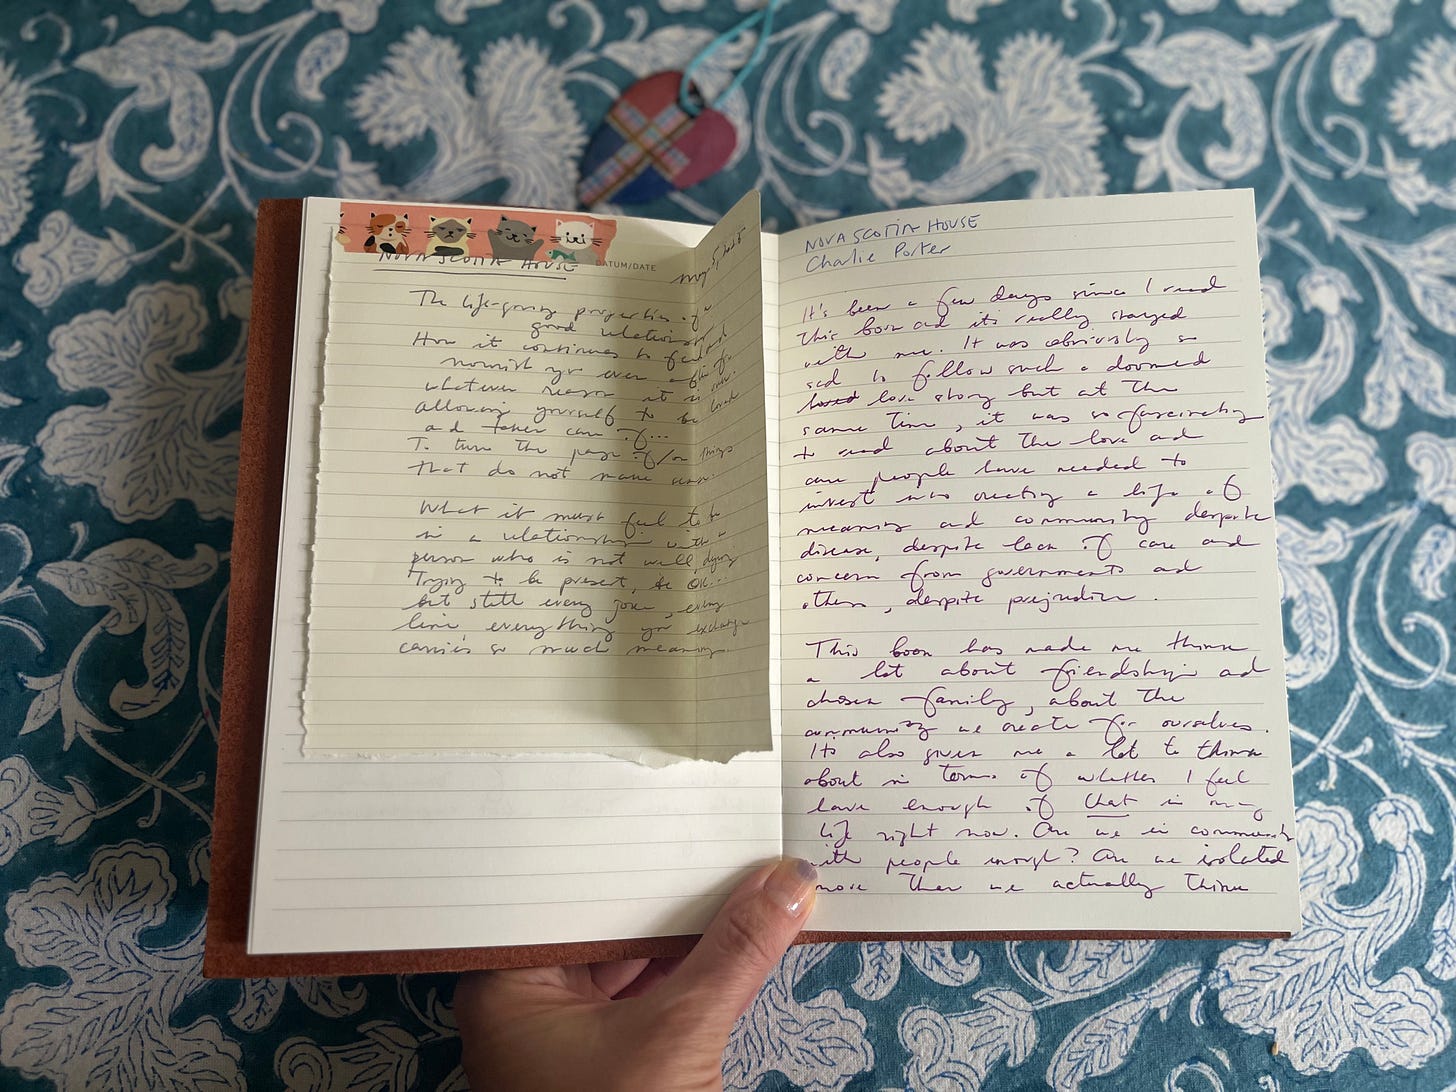 NOVA SCOTIA HOUSE
DATUM/DATE
The life-giving properties of a
good relationship
How it continues to feed and
nourish you even after for
whatever reason it is over.
allowing yourself to be loved
and taken care of...
To turn the page of/on things
that do not make sense.
What it must feel to be
in a relationship with a
person who is not well, dying
Trying to be present, be OK...
but still every joke, every
line, everything you exchange
carries so much meaning.
NOVA SCOTIA HOUSE
Charlie Porter
It's been a few days since I read
this book and it's really stayed
with me. It was obviously so
sad to follow such a doomed
love story but at the
same time, it was so fascinating
to read about the love and
care people have needed to
invest into creating a life of
meaning and community despite
disease, despite lack of care and
concern from governments and
others, despite prejudice.
This book has made me think
a lot about friendship and
chosen family, about the
community we create for ourselves.
It also gives me a lot to think
about in terms of whether I feel
I have enough of that in my
life right now. Are we in community
with people enough? Are we isolated
more than we actually think